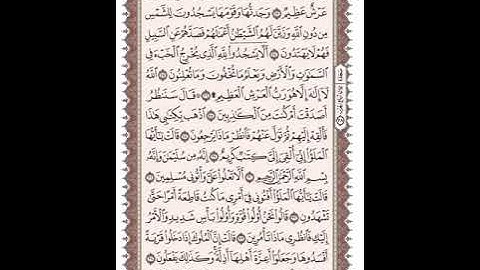 عَرْشٌ عَظِيمٌ ۝ وَجَدتُّهَا وَقَوْمَهَا يَسْجُدُونَ لِلشَّمْسِ
مِن دُونِ اللَّهِ وَزَيَّنَ لَهُمُ الشَّيْطَٰنُ أَعْمَٰلَهُمْ فَصَدَّهُمْ عَنِ السَّبِيلِ
فَهُمْ لَا يَهْتَدُونَ ۝ أَلَّا يَسْجُدُوا۟ لِلَّهِ الَّذِى يُخْرِجُ الْخَبْءَ فِى
السَّمَٰوَٰتِ وَالْأَرْضِ وَيَعْلَمُ مَا تُخْفُونَ وَمَا تُعْلِنُونَ ۝ اللَّهُ
لَآ إِلَٰهَ إِلَّا هُوَ رَبُّ الْعَرْشِ الْعَظِيمِ ۩ ۝ قَالَ سَنَنظُرُ
أَصَدَقْتَ أَمْ كُنتَ مِنَ الْكَٰذِبِينَ ۝ اذْهَب بِّكِتَٰبِى هَٰذَا
فَأَلْقِهْ إِلَيْهِمْ ثُمَّ تَوَلَّ عَنْهُمْ فَانظُرْ مَاذَا يَرْجِعُونَ ۝ قَالَتْ يَٰٓأَيُّهَا
الْمَلَؤُا۟ إِنِّىٓ أُلْقِىَ إِلَىَّ كِتَٰبٌ كَرِيمٌ ۝ إِنَّهُۥ مِن سُلَيْمَٰنَ وَإِنَّهُۥ
بِسْمِ اللَّهِ الرَّحْمَٰنِ الرَّحِيمِ ۝ أَلَّا تَعْلُوا۟ عَلَىَّ وَأْتُونِى مُسْلِمِينَ ۝
قَالَتْ يَٰٓأَيُّهَا الْمَلَؤُا۟ أَفْتُونِى فِىٓ أَمْرِى مَا كُنتُ قَاطِعَةً أَمْرًا حَتَّىٰ
تَشْهَدُونِ ۝ قَالُوا۟ نَحْنُ أُو۟لُوا۟ قُوَّةٍ وَأُو۟لُوا۟ بَأْسٍ شَدِيدٍ وَالْأَمْرُ
إِلَيْكِ فَانظُرِى مَاذَا تَأْمُرِينَ ۝ قَالَتْ إِنَّ الْمُلُوكَ إِذَا دَخَلُوا۟ قَرْيَةً
أَفْسَدُوهَا وَجَعَلُوٓا۟ أَعِزَّةَ أَهْلِهَآ أَذِلَّةً وَكَذَٰلِكَ يَفْعَلُونَ ۝